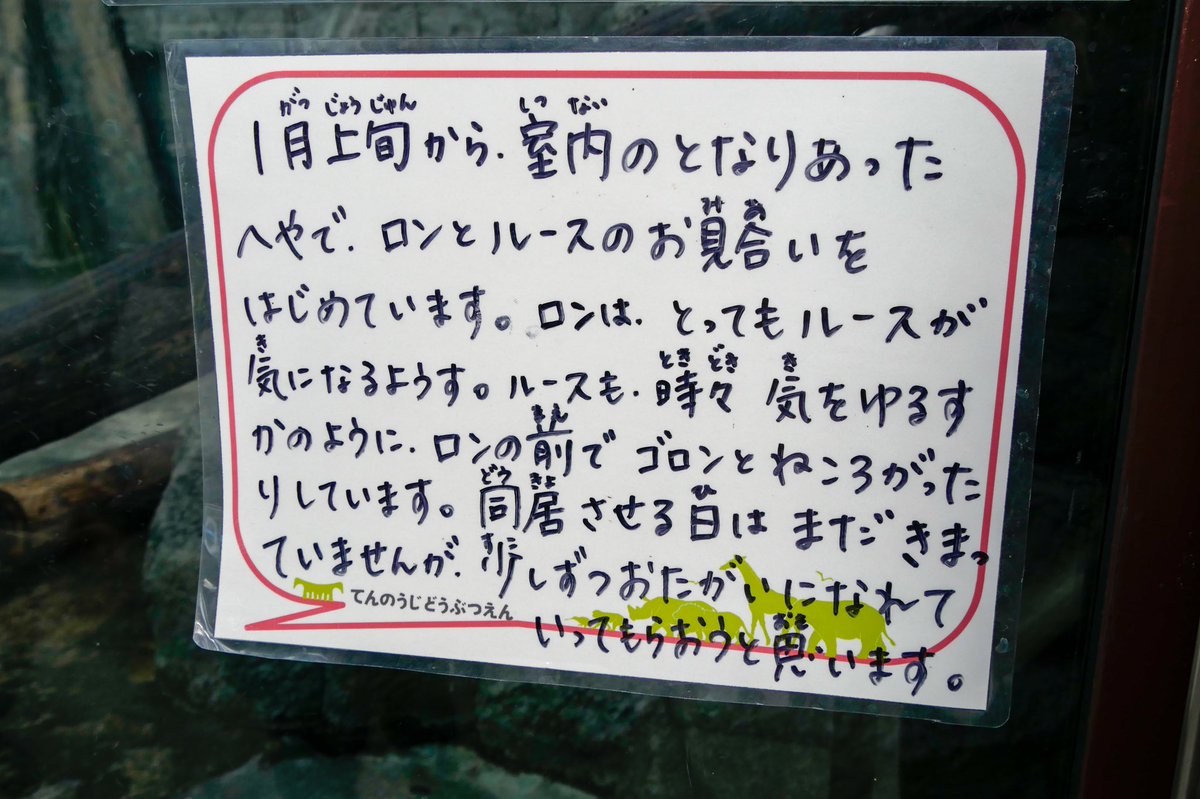 1月上旬から、室内のとなりあった
へやで、ロンとルースのお見合いを
はじめています。ロンは、とってもルースが
気になるようす。ルースも、時々 気をゆるす
かのように、ロンの前で ゴロンとねころがった
りしています。同居させる日は まだ きまっ
ていませんが、少しずつおたがいになれて
いってもらおうと思います。
てんのうじどうぶつえん